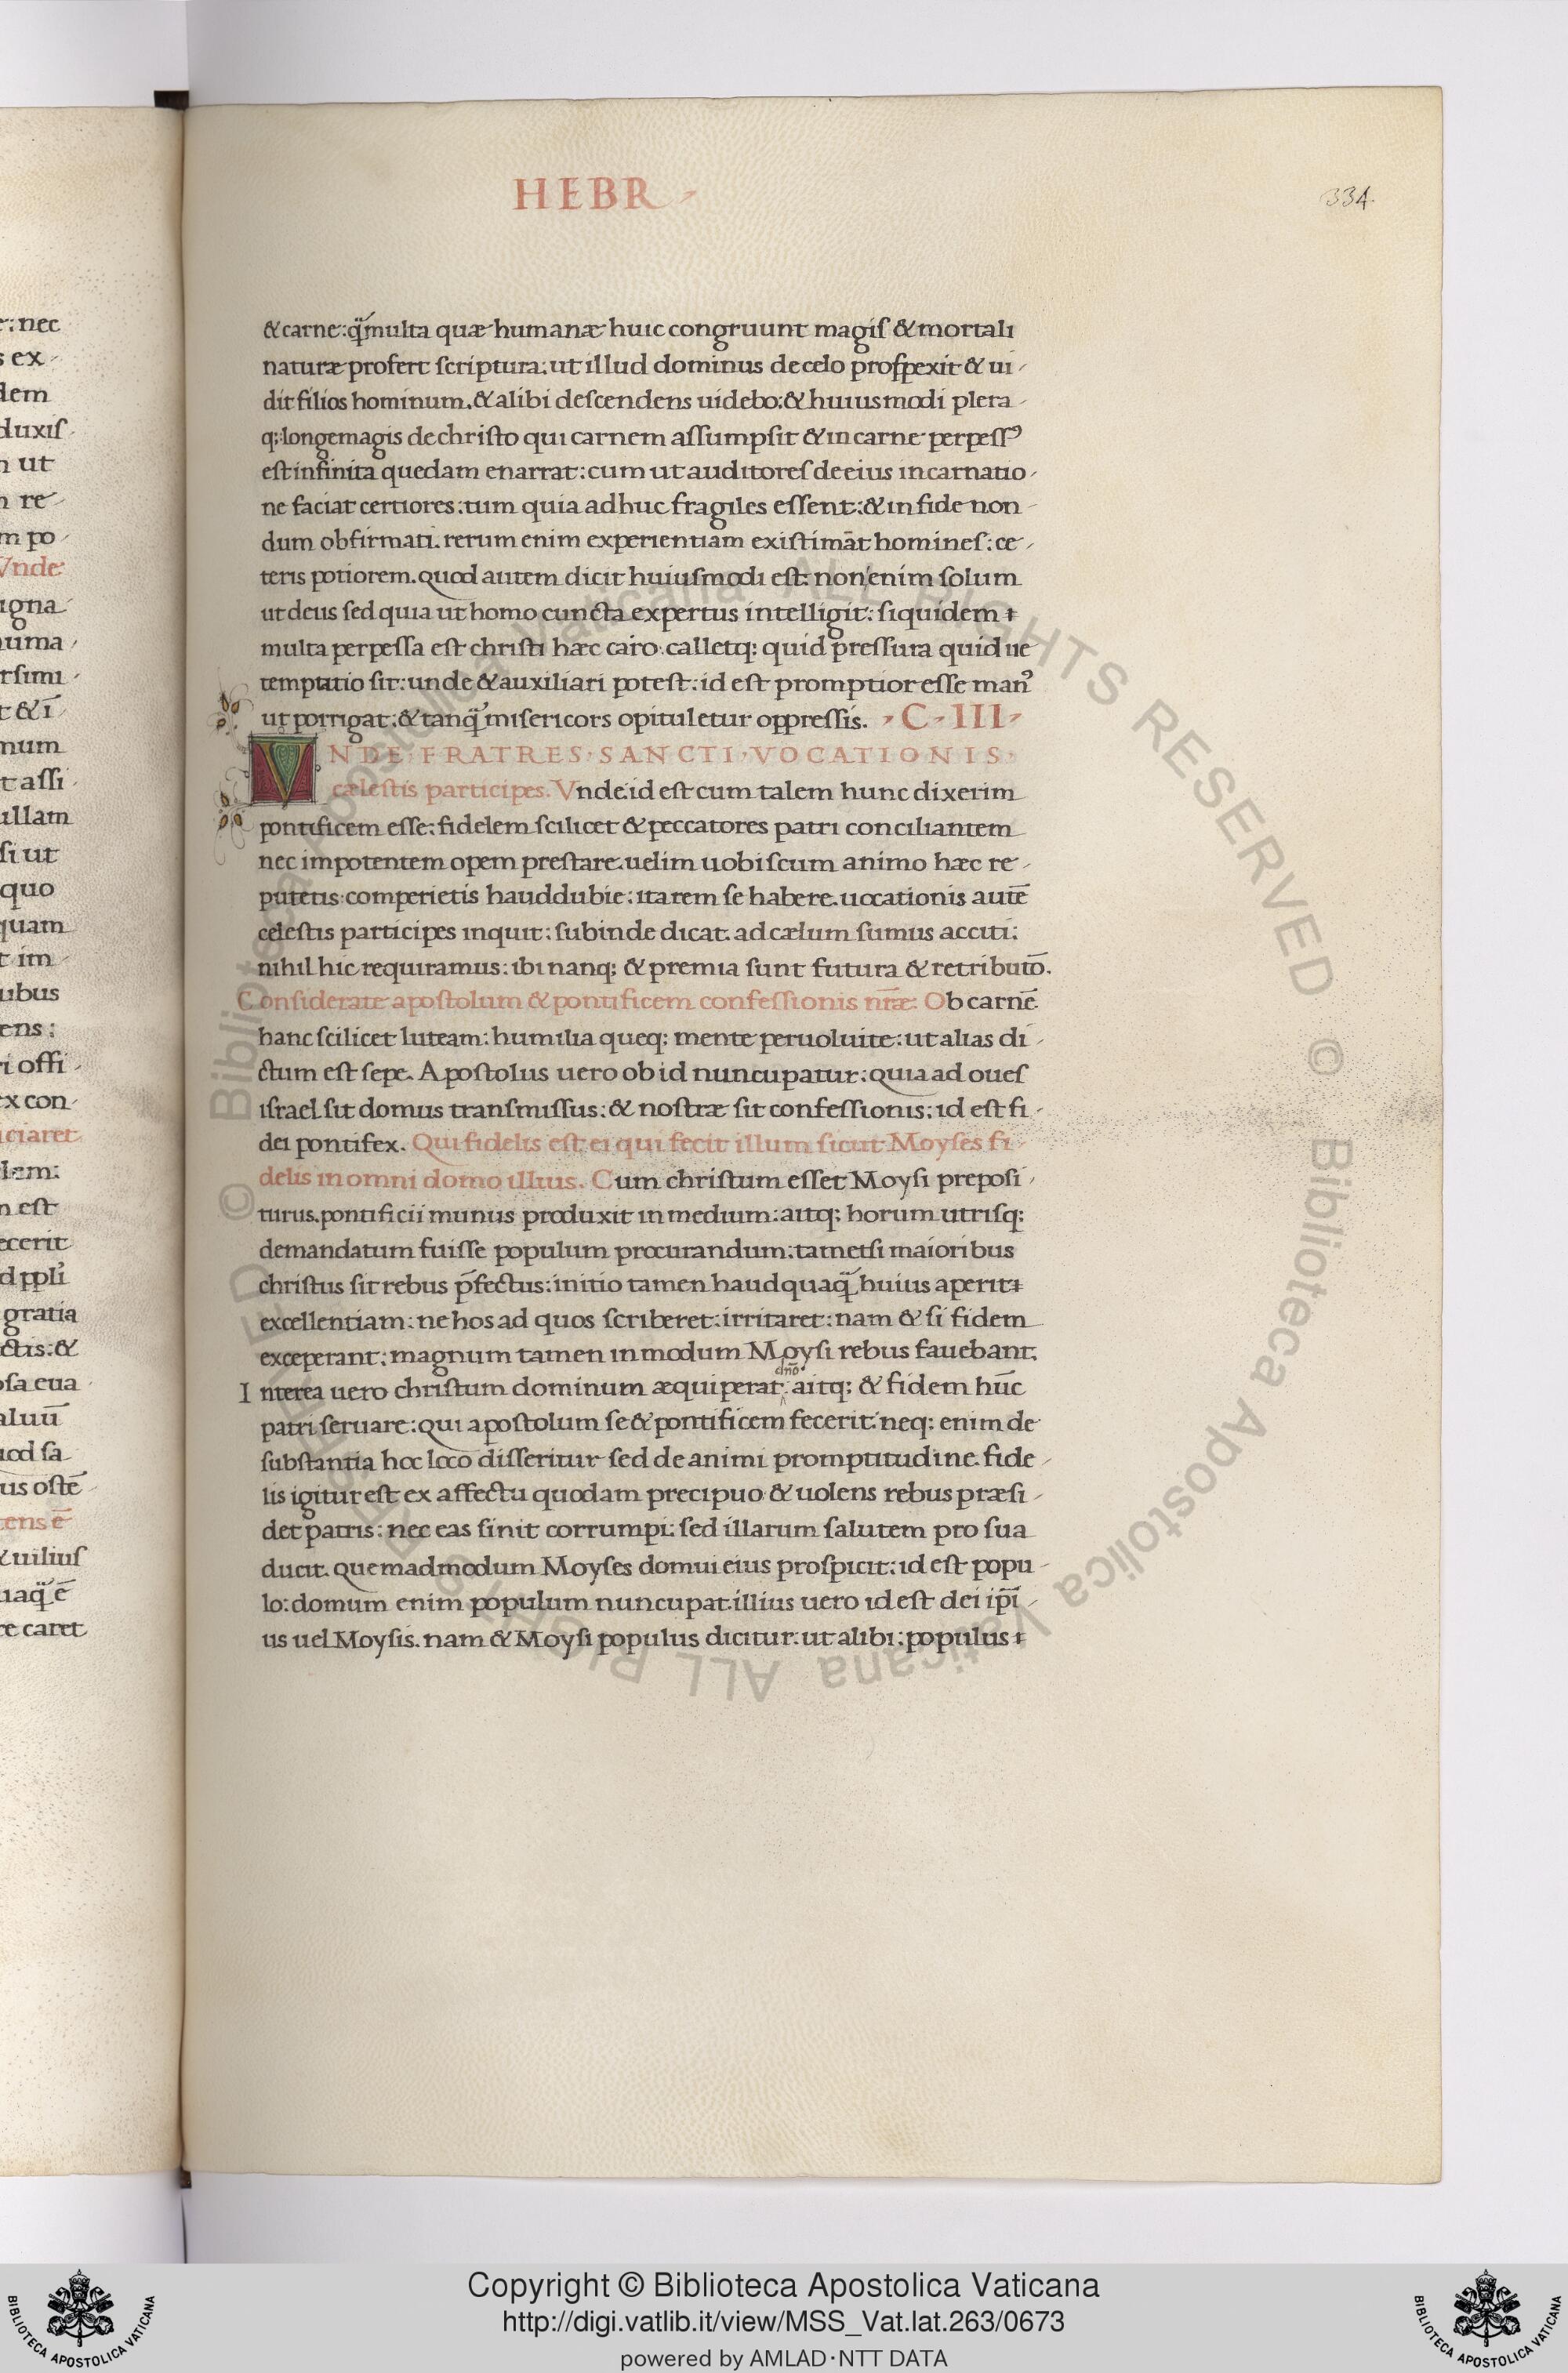 HEBR
334.
& carne: q̃ multa quæ humanæ huic congruunt magiſ & mortali
naturæ profert ſcriptura: ut illud dominus de celo proſpexit & ui-
dit filios hominum. & alibi deſcendens uidebo: & huiusmodi plera-
q; longe magis de chriſto qui carnem aſſumpſit & in carne perpeſſꝰ
eſt infinita quedam enarrat: cum ut auditoreſ de eius incarnatio-
ne faciat certiores: tum quia adhuc fragiles eſſent: & in fide non-
dum obfirmati. rerum enim experientiam exiſtimāt homineſ: ce-
teris potiorem. quod autem dicit huiuſmodi eſt: non enim ſolum
ut deus ſed quia ut homo cuncta expertus intelligit: ſiquidem
multa perpeſſa eſt chriſti hæc caro. calletq: quid preſſura quid ue
temptatio ſit: unde & auxiliari poteſt: id eſt promptior eſſe manꝰ
ut porrigat: & tanq̃ miſericors opituletur oppreſſis. C · III
VNDE · FRATRES · SANCTI · VOCATIONIS ·
cæleſtis participes. Vnde id eſt cum talem hunc dixerim
pontificem eſſe: fidelem ſcilicet & peccatores patri conciliantem
nec impotentem opem preſtare. uelim uobiſcum animo hæc re-
putetis: comperietis hauddubie: ita rem ſe habere. uocationis autē
celeſtis participes inquit: ſubinde dicat. ad cælum ſumus acciti:
nihil hic requiramus: ibi nanq; & premia ſunt futura & retributō.
Conſiderate apoſtolum & pontificem confeſſionis nr̄æ. Ob carnē
hanc ſcilicet luteam: humilia queq; mente peruoluite: ut alias di-
ctum eſt ſepe. Apoſtolus uero ob id nuncupatur: quia ad oueſ
iſrael ſit domus tranſmiſſus: & noſtræ ſit confeſſionis: id eſt fi-
dei pontifex. Qui fidelis eſt ei qui fecit illum ſicut Moyſes fi-
delis in omni domo illius. Cum chriſtum eſſet Moyſi prepoſi-
turus. pontificii munus produxit in medium: aitq; horum utriſq;
demandatum fuiſſe populum procurandum: tametſi maioribus
chriſtus ſit rebus p̄fectus: initio tamen haudquaq̃ huius aperit
excellentiam: ne hos ad quos ſcriberet: irritaret: nam & ſi fidem
exceperant: magnum tamen in modum Moyſi rebus fauebant.
dn̄o
Interea uero chriſtum dominum æquiperat: aitq; & fidem hūc
patri ſeruare: qui apoſtolum ſe & pontificem fecerit: neq; enim de
ſubſtantia hoc loco diſſeritur ſed de animi promptitudine. fide-
lis igitur eſt ex affectu quodam precipuo & uolens rebus præſi-
det patris: nec eas ſinit corrumpi: ſed illarum ſalutem pro ſua
ducit. quemadmodum Moyſes domui eius proſpicit: id eſt popu-
lo: domum enim populum nuncupat. illius uero id eſt dei ip̄i-
us uel Moyſis. nam & Moyſi populus dicitur: ut alibi: populus
Copyright © Biblioteca Apostolica Vaticana
http://digi.vatlib.it/view/MSS_Vat.lat.263/0673
powered by AMLAD·NTT DATA